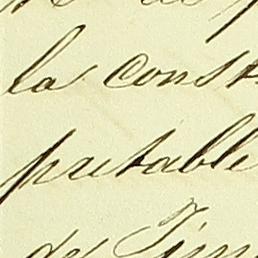 la const
pretable
de Tim